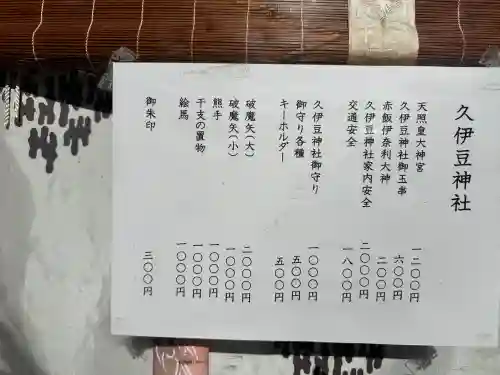 久伊豆神社
天照皇大神宮 一二〇〇円
久伊豆神社御玉串 六〇〇円
赤飯伊奈利大神 二〇〇円
久伊豆神社家内安全 二〇〇〇円
交通安全 一八〇〇円
久伊豆神社御守り 一〇〇〇円
御守り各種 五〇〇円
キーホルダー 五〇〇円
破魔矢(大) 二〇〇〇円
破魔矢(小) 一〇〇〇円
熊手 一〇〇〇円
干支の置物 一〇〇〇円
絵馬 一〇〇〇円
御朱印 三〇〇円